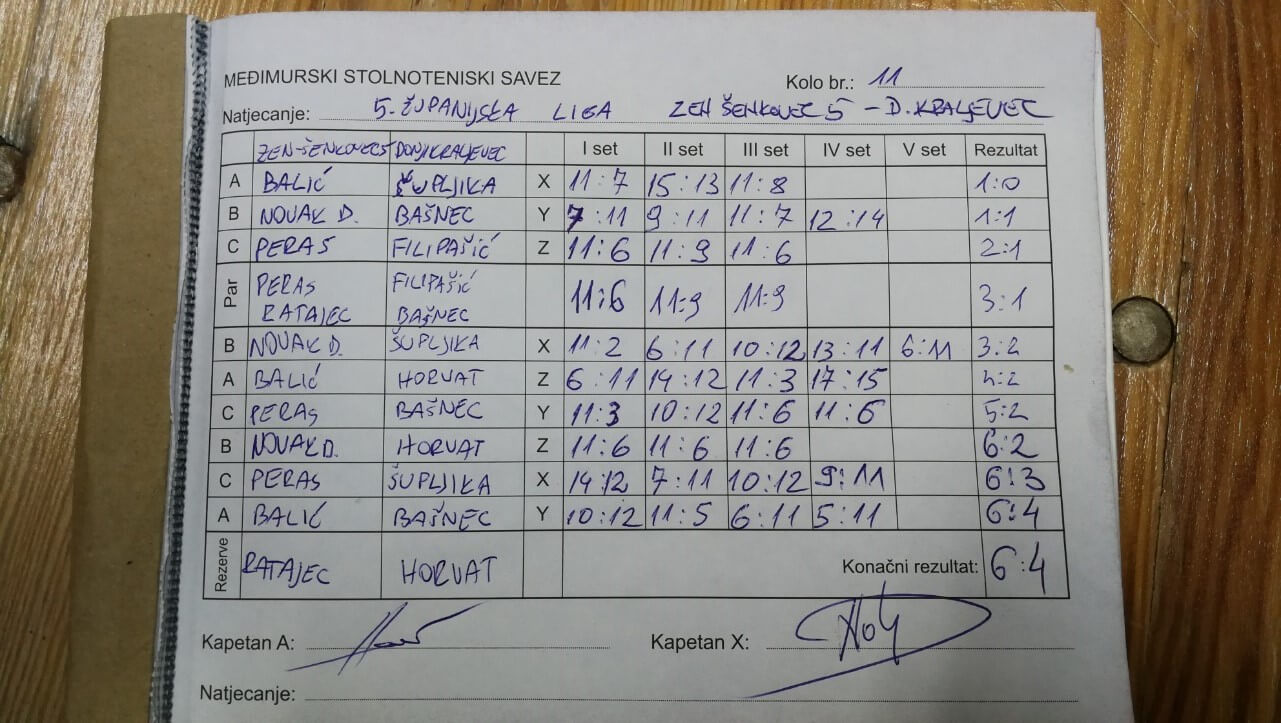 MEĐIMURSKI STOLNOTENISKI SAVEZ Kolo br.: 11
Natjecanje: 5. ŽUPANIJSKA LIGA ZEN ŠENKOVEC 5 - D. KRALJEVEC
ZEN-ŠENKOVEC5 DONJI KRALJEVEC I set II set III set IV set V set Rezultat
A BALIĆ ŠUPLJIKA X 11:7 15:13 11:8 1:0
B NOVAK D. BAŠNEC Y 7:11 9:11 11:7 12:14 1:1
C PERAS FILIPAŠIĆ Z 11:6 11:9 11:6 2:1
Par PERAS FILIPAŠIĆ 11:6 11:9 11:9 3:1
RATAJEC BAŠNEC
B NOVAK D. ŠUPLJIKA X 11:2 6:11 10:12 13:11 6:11 3:2
A BALIĆ HORVAT Z 6:11 14:12 11:3 17:15 4:2
C PERAS BAŠNEC Y 11:3 10:12 11:6 11:6 5:2
B NOVAK D. HORVAT Z 11:6 11:6 11:6 6:2
C PERAS ŠUPLJIKA X 14:12 7:11 10:12 9:11 6:3
A BALIĆ BAŠNEC Y 10:12 11:5 6:11 5:11 6:4
Rezerve RATAJEC HORVAT Konačni rezultat: 6:4
Kapetan A: Kapetan X:
Natjecanje: